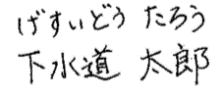 げすいどう たろう
下水道 太郎